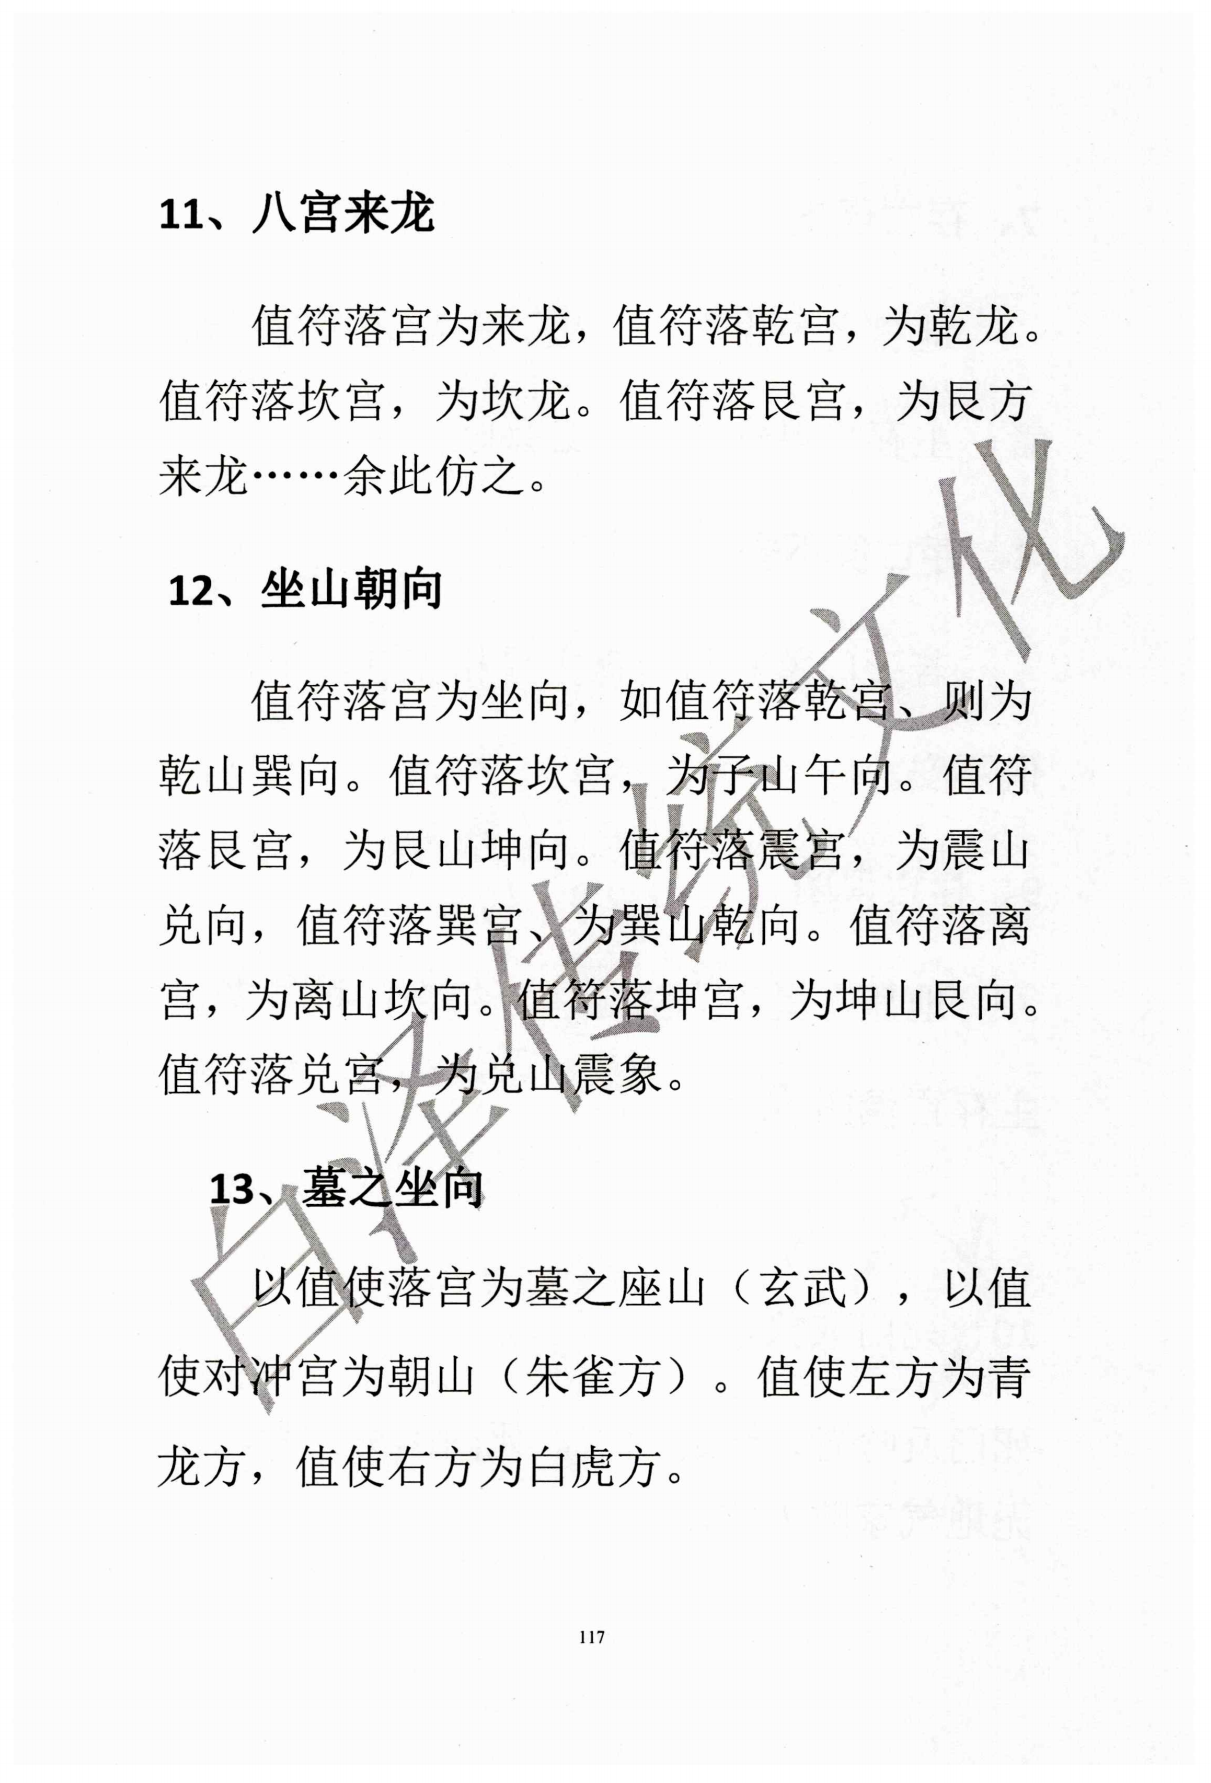 11、八宫来龙
值符落宫为来龙，值符落乾宫，为乾龙。
值符落坎宫，为坎龙。值符落艮宫，为艮方
来龙……余此仿之。
12、坐山朝向
值符落宫为坐向，如值符落乾宫、则为
乾山巽向。值符落坎宫，为子山午向。值符
落艮宫，为艮山坤向。值符落震宫，为震山
兑向，值符落巽宫、为巽山乾向。值符落离
宫，为离山坎向。值符落坤宫，为坤山艮向。
值符落兑宫，为兑山震象。
13、墓之坐向
以值使落宫为墓之座山（玄武），以值
使对冲宫为朝山（朱雀方）。值使左方为青
龙方，值使右方为白虎方。
117
白泽传统文化